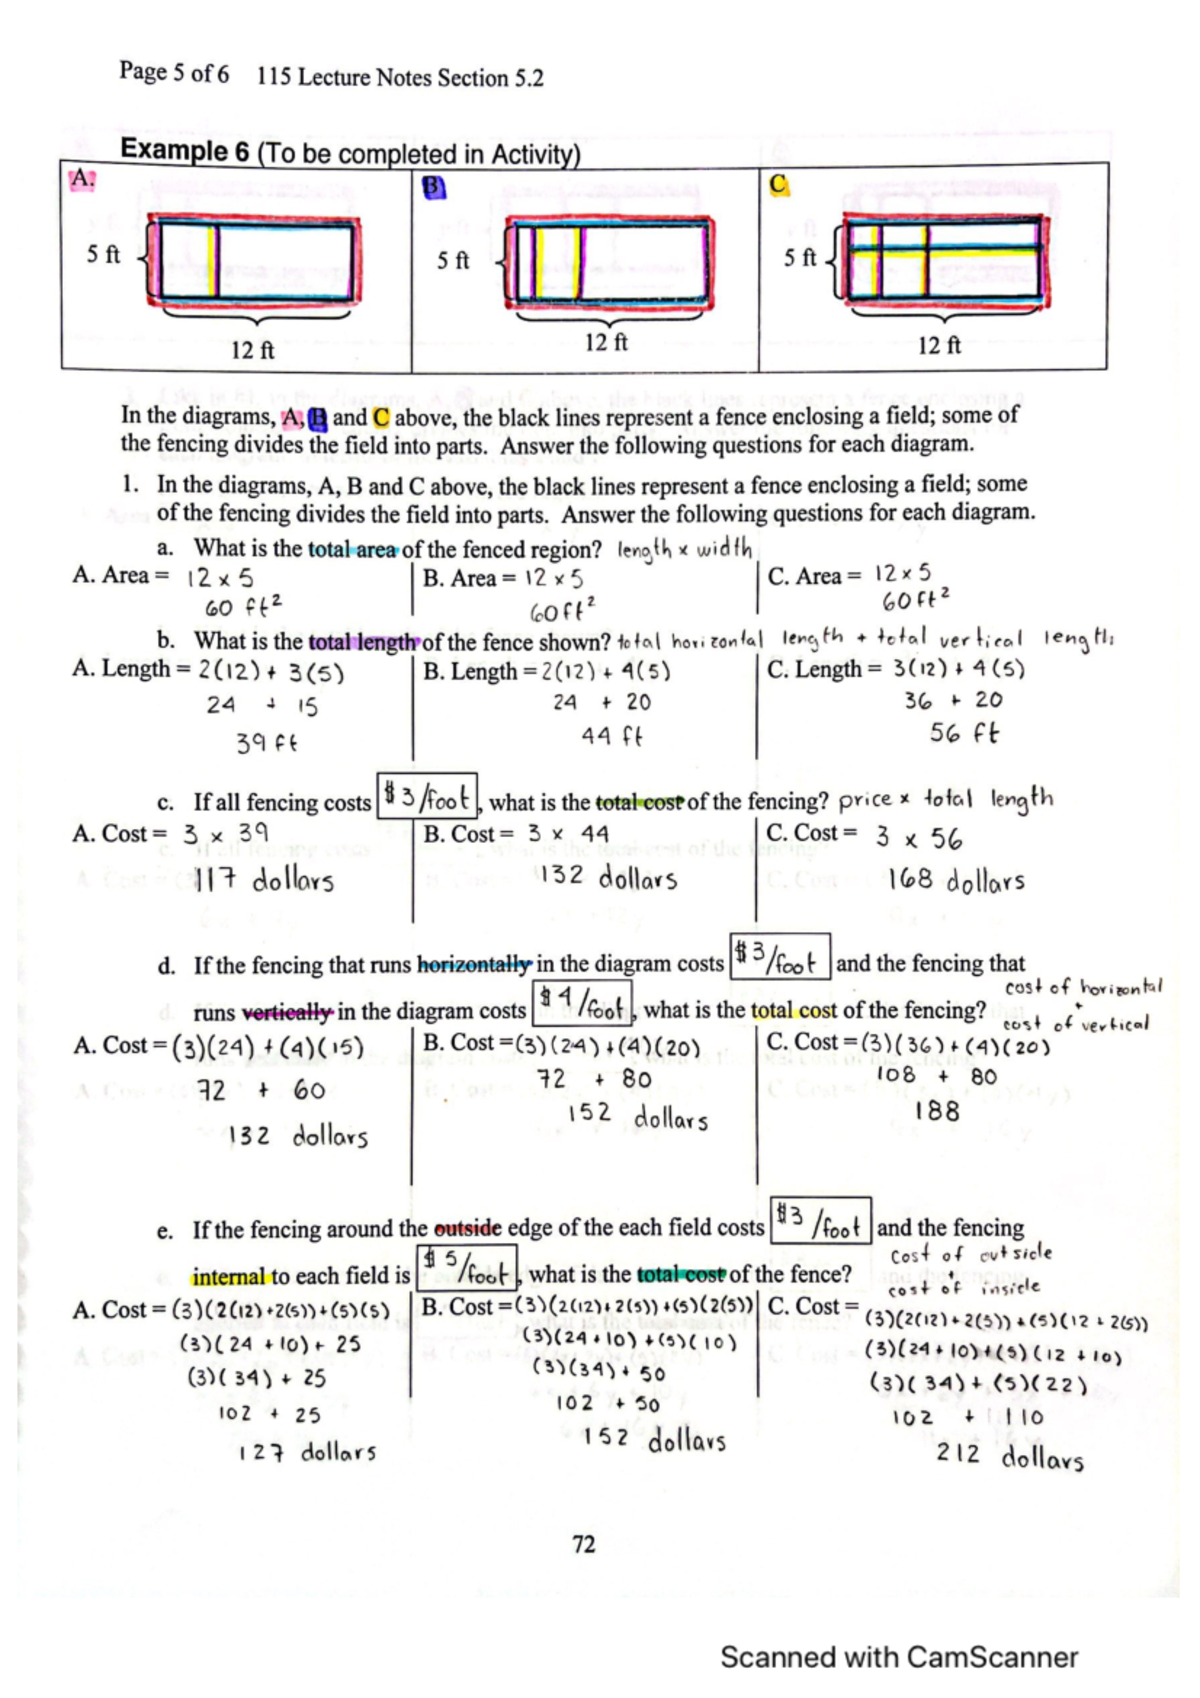 Page 5 of 6 115 Lecture Notes Section 5.2
Example 6 (To be completed in Activity)
A. B C
5 ft 5 ft 5 ft
12 ft 12 ft 12 ft
In the diagrams, A, B and C above, the black lines represent a fence enclosing a field; some of
the fencing divides the field into parts. Answer the following questions for each diagram.
1. In the diagrams, A, B and C above, the black lines represent a fence enclosing a field; some
of the fencing divides the field into parts. Answer the following questions for each diagram.
a. What is the total area of the fenced region? length x width
A. Area = 12 x 5 B. Area = 12 x 5 C. Area = 12 x 5
60 ft² 60 ft² 60 ft²
b. What is the total length of the fence shown? total horizontal length + total vertical length
A. Length = 2(12) + 3(5) B. Length = 2(12) + 4(5) C. Length = 3(12) + 4(5)
24 + 15 24 + 20 36 + 20
39 ft 44 ft 56 ft
c. If all fencing costs $3/foot, what is the total cost of the fencing? price x total length
A. Cost = 3 x 39 B. Cost = 3 x 44 C. Cost = 3 x 56
117 dollars 132 dollars 168 dollars
d. If the fencing that runs horizontally in the diagram costs $3/foot and the fencing that
runs vertically in the diagram costs $4/foot, what is the total cost of the fencing? cost of horizontal + cost of vertical
A. Cost = (3)(24) + (4)(15) B. Cost = (3)(24) + (4)(20) C. Cost = (3)(36) + (4)(20)
72 + 60 72 + 80 108 + 80
132 dollars 152 dollars 188
e. If the fencing around the outside edge of the each field costs $3/foot and the fencing
internal to each field is $5/foot, what is the total cost of the fence? cost of outside + cost of inside
A. Cost = (3)(2(12)+2(5))+(5)(5) B. Cost = (3)(2(12)+2(5))+(5)(2(5)) C. Cost = (3)(2(12)+2(5))+(5)(12+2(5))
(3)(24+10)+25 (3)(24+10)+(5)(10) (3)(24+10)+(5)(12+10)
(3)(34)+25 (3)(34)+50 (3)(34)+(5)(22)
102 + 25 102 + 50 102 + 110
127 dollars 152 dollars 212 dollars
72
Scanned with CamScanner